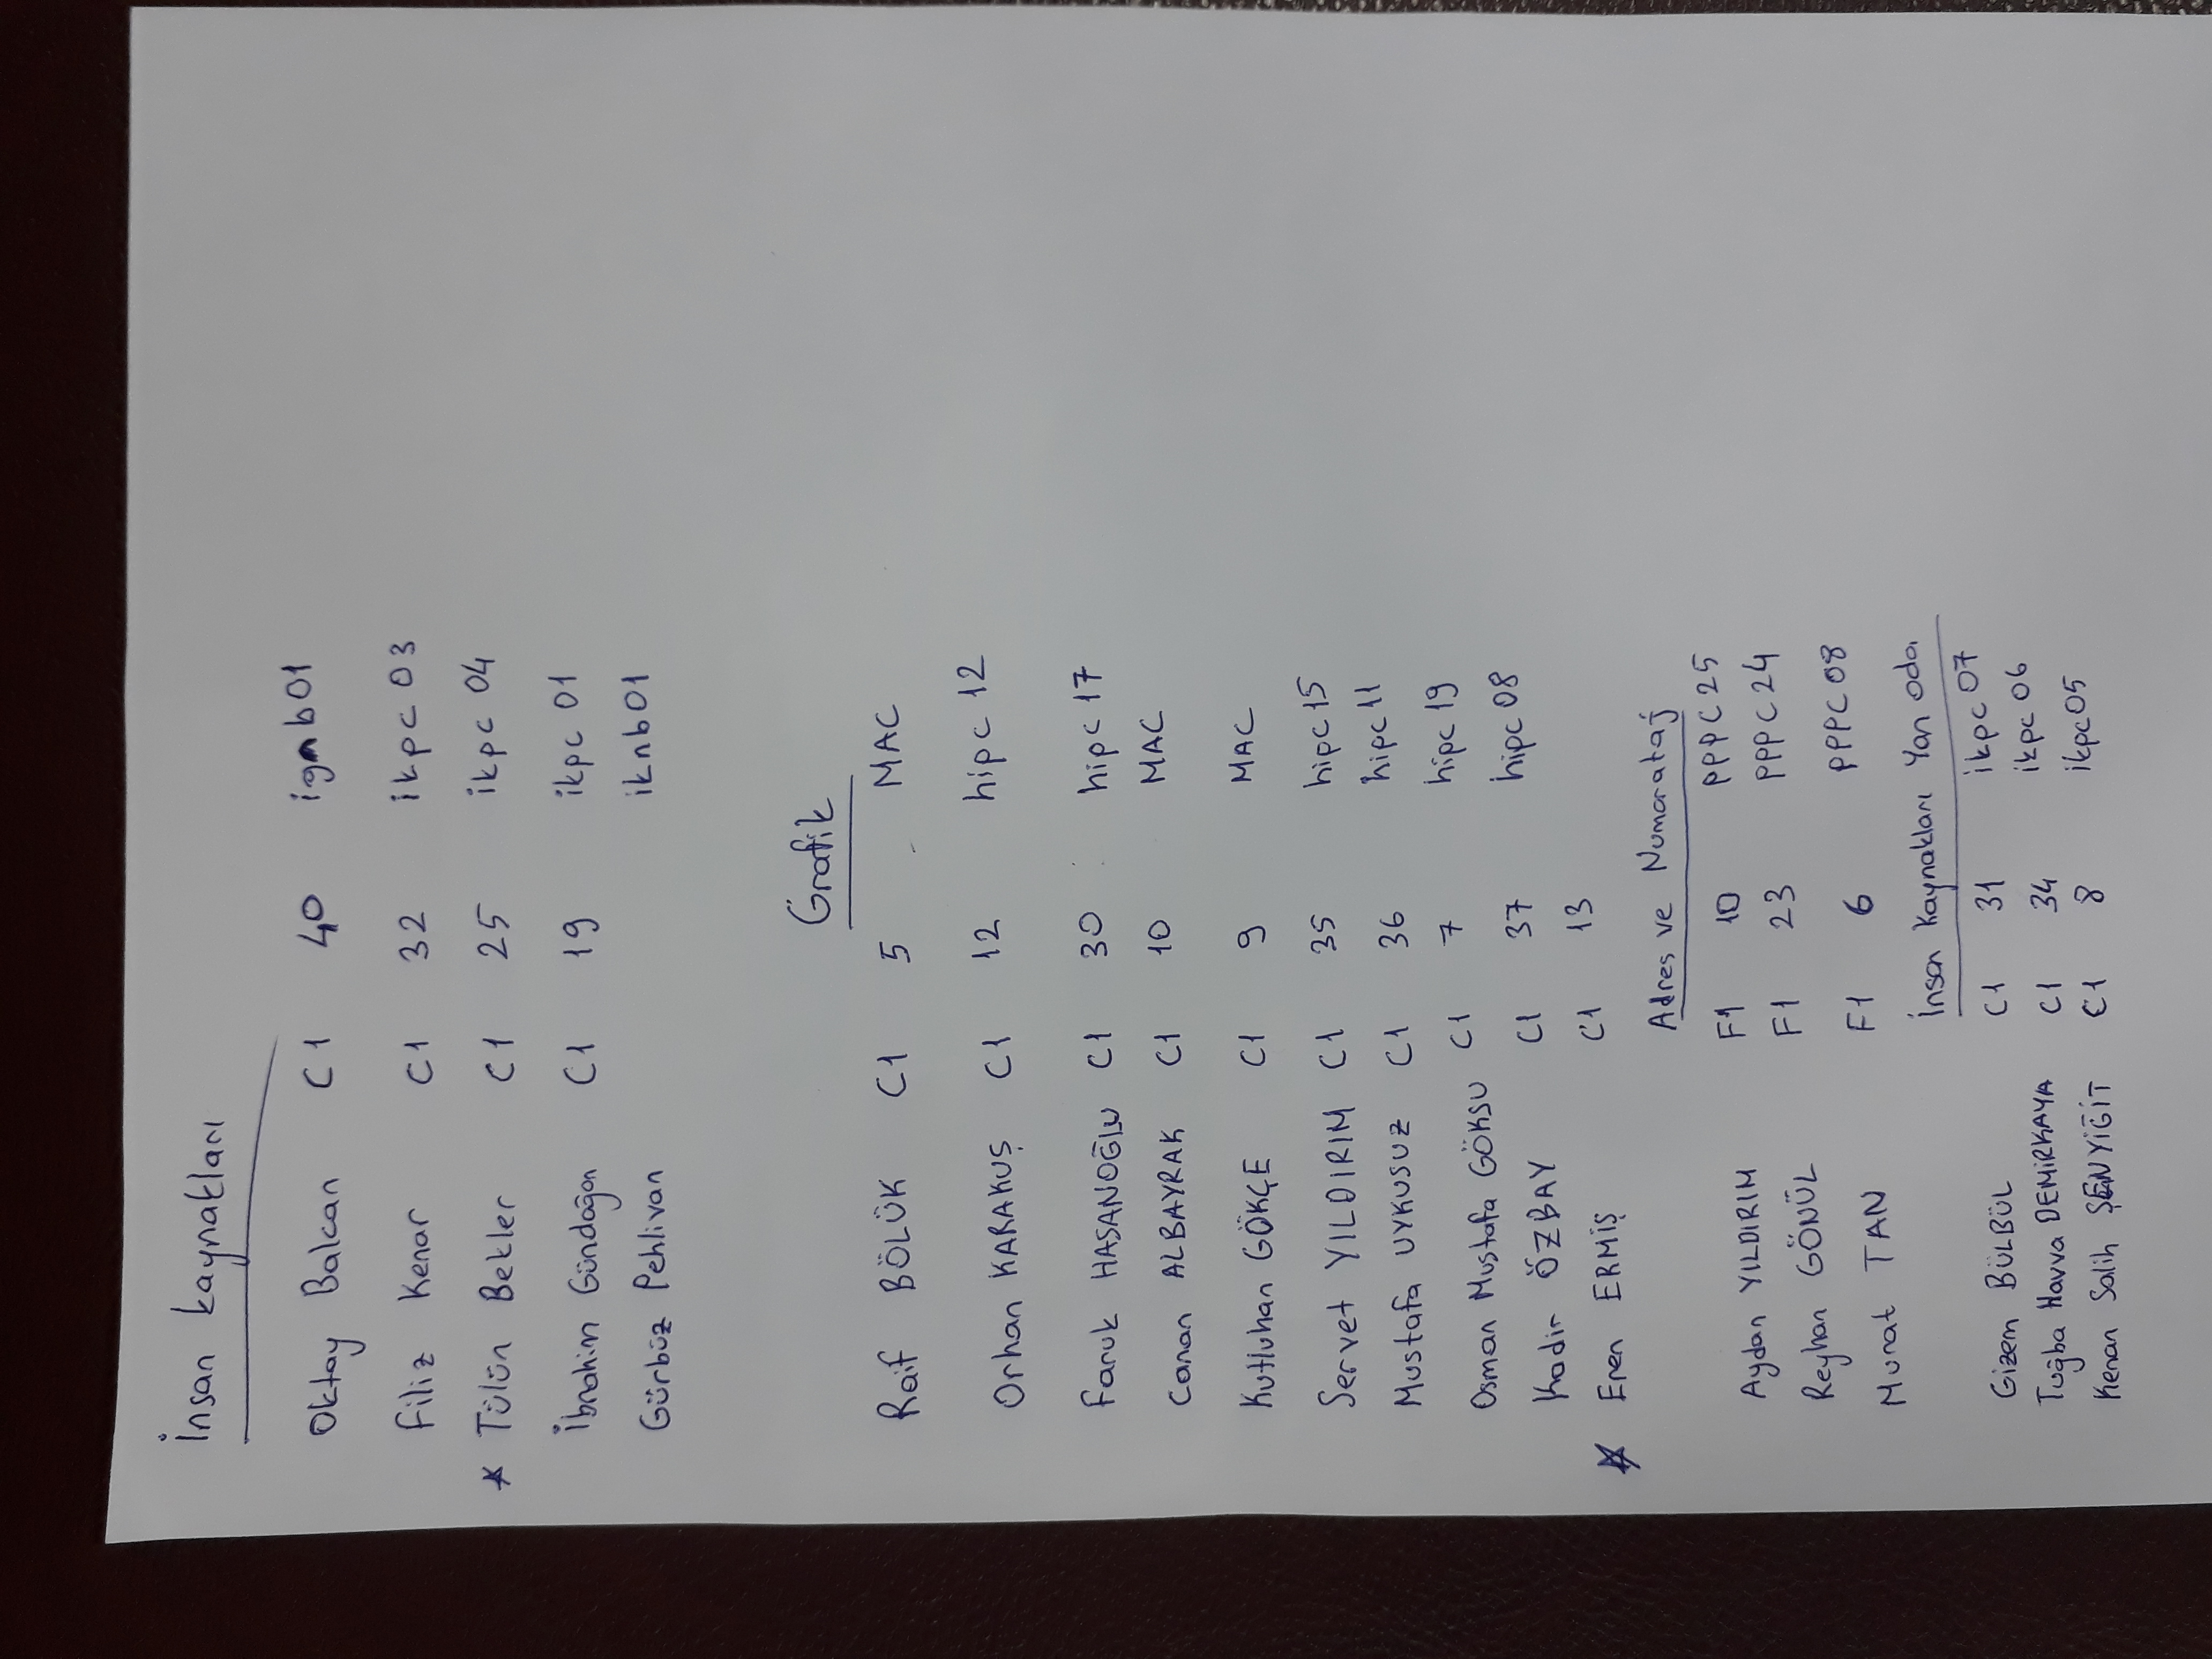 İnsan kaynakları
Oktay Balcan C1 40 ignb01
Filiz Kenar C1 32 ikpc 03
* Tülün Bekler C1 25 ikpc 04
İbrahim Gündoğan C1 19 ikpc 01
Gürbüz Pehlivan iknb01
Grafik
Raif BÖLÜK C1 5 MAC
Orhan KARAKUŞ C1 12 hipc 12
Faruk HASANOĞLU C1 30 hipc 17
Canan ALBAYRAK C1 10 MAC
Kutluhan GÖKÇE C1 9 MAC
Servet YILDIRIM C1 35 hipc 15
Mustafa UYKUSUZ C1 36 hipc 11
Osman Mustafa GÖKSU C1 7 hipc 19
Kadir ÖZBAY C1 37 hipc 08
* Eren ERMİŞ C1 13
Adres ve Numarataj
Aydan YILDIRIM F1 10 PPPC 25
Reyhan GÖNÜL F1 23 PPPC 24
Murat TAN F1 6 PPPC 08
İnsan Kaynakları Yan oda
Gizem BÜLBÜL C1 31 ikpc 07
Tuğba Havva DEMİRKAYA C1 34 ikpc 06
Kenan Salih ŞENYİĞİT C1 8 ikpc05